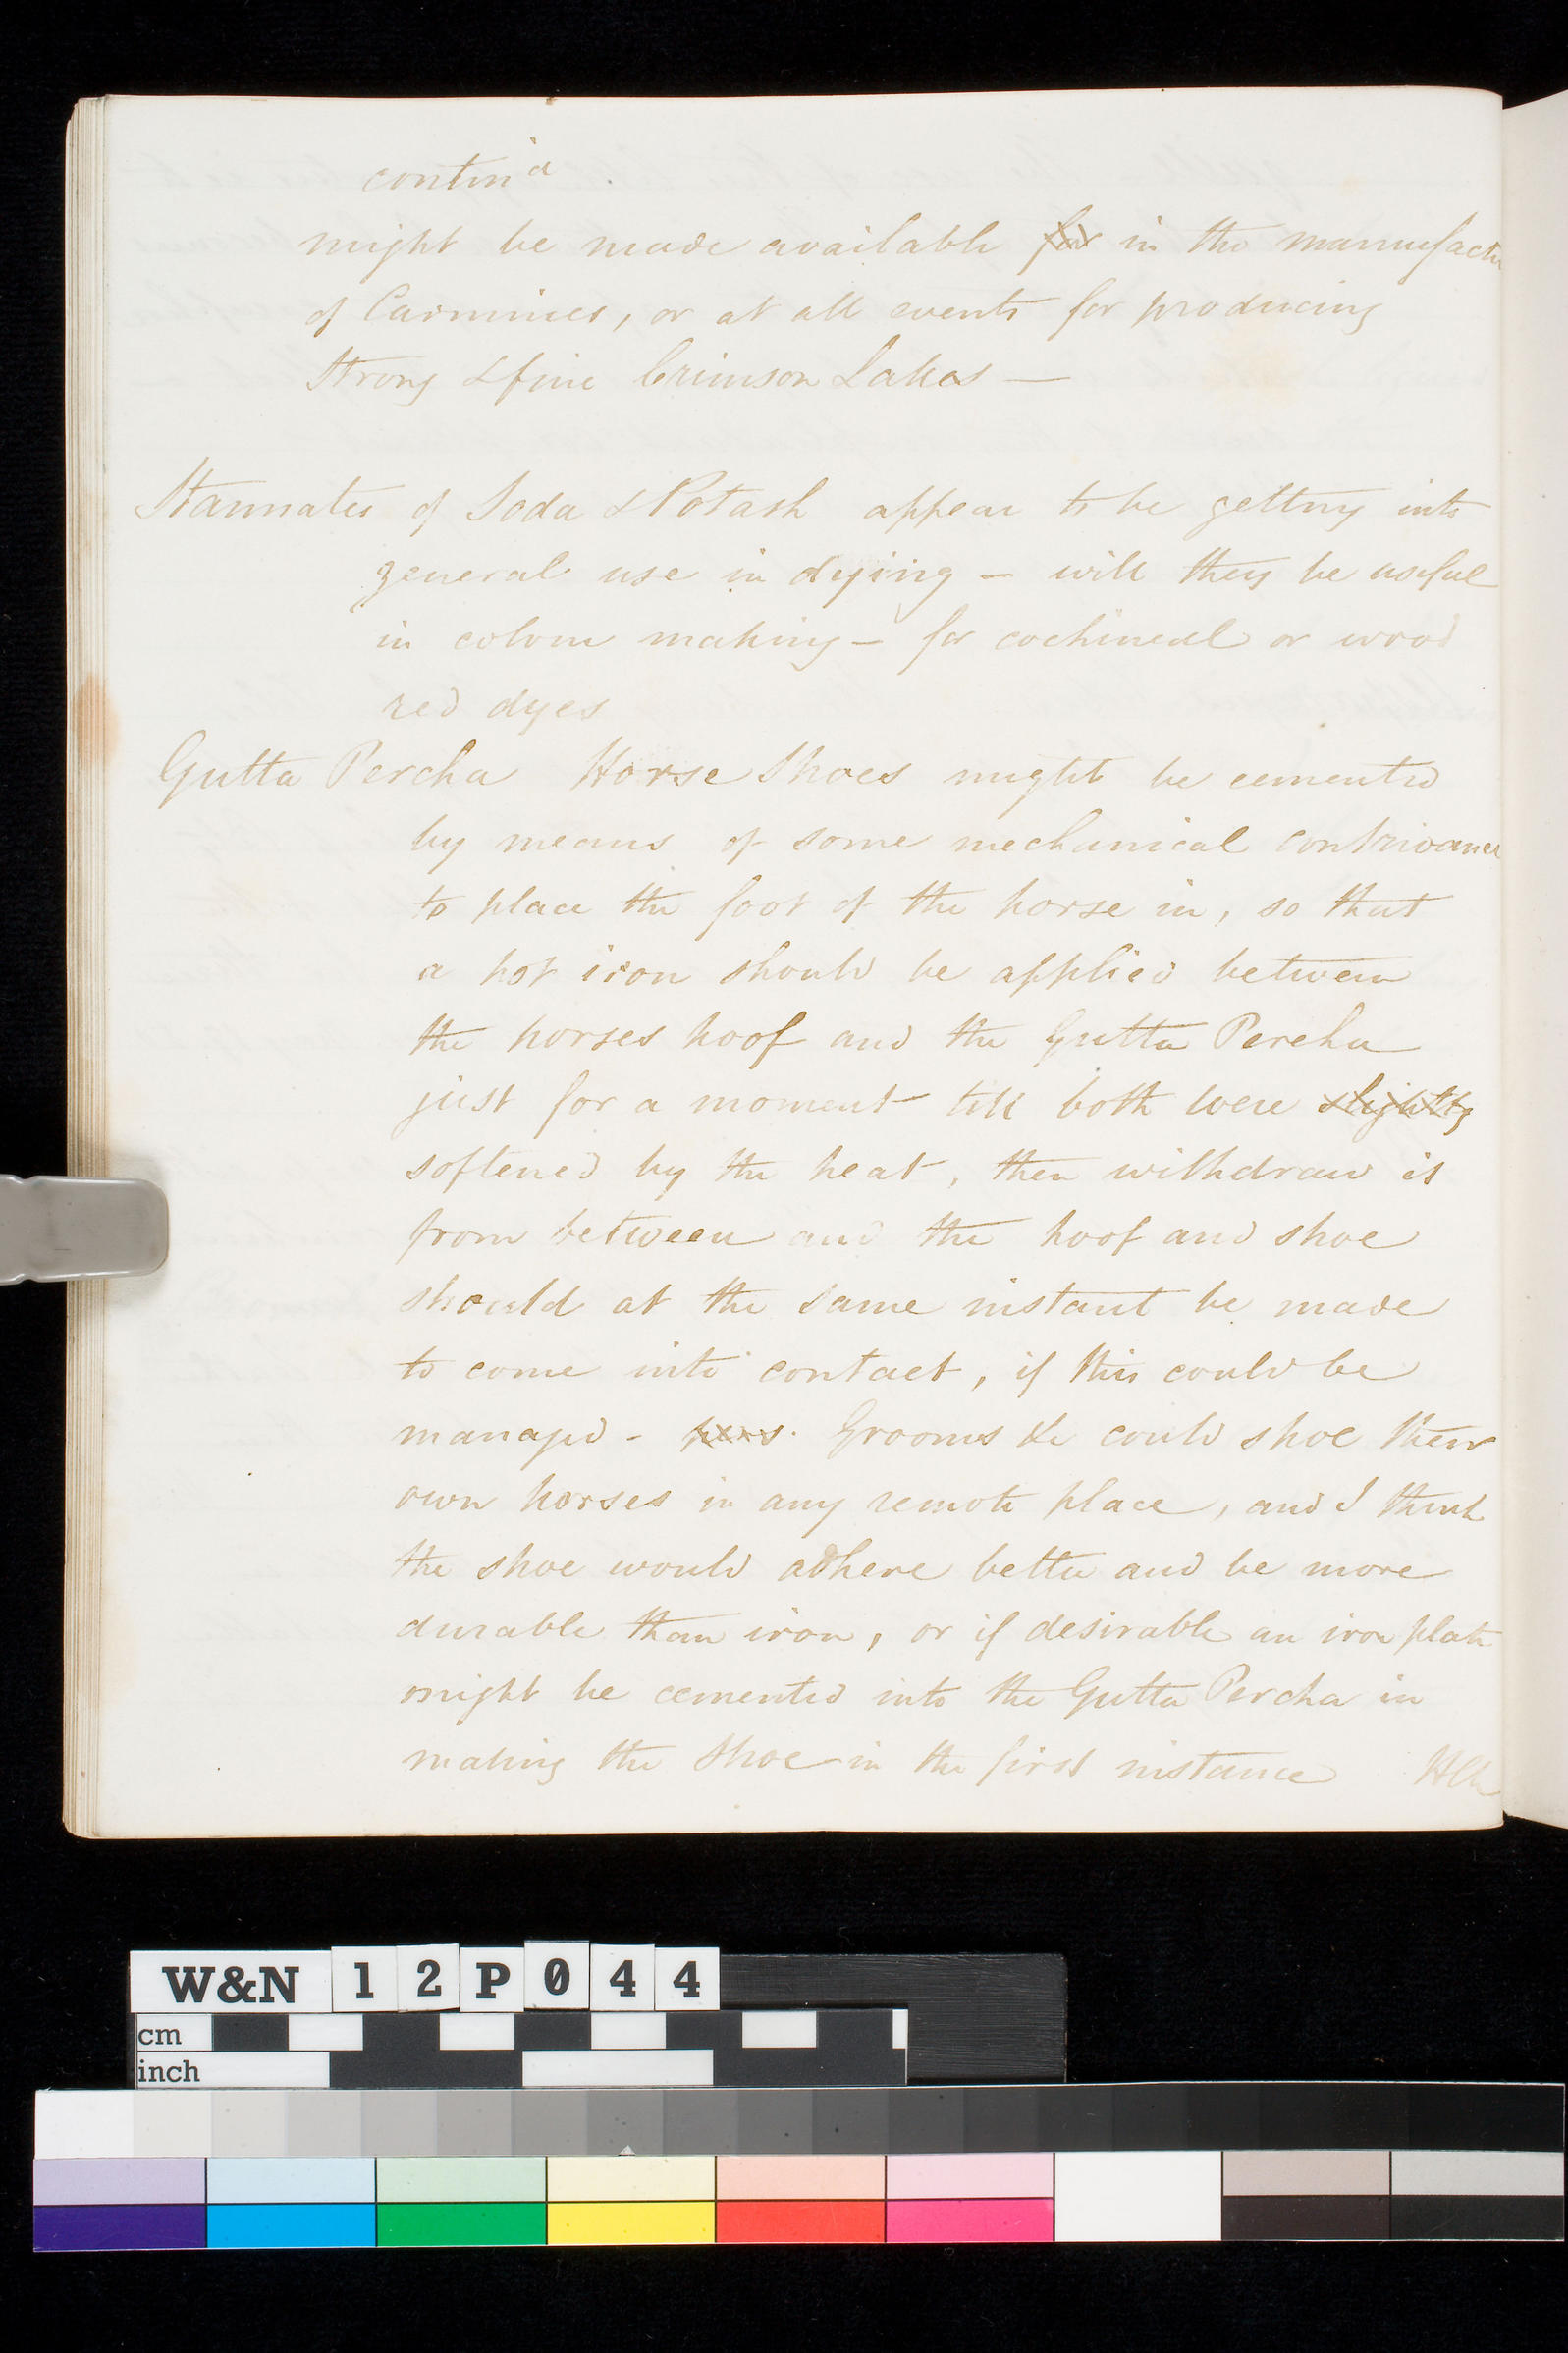 contin'd
might be made available for in the manufactu
of Carmines, or at all events for producing
strong & fine Crimson Lakes —
Stannates of Soda & Potash appear to be getting into
general use in dying — will they be useful
in colour making — for cochineal or wood
red dyes
Gutta Percha Horse Shoes might be cemented
by means of some mechanical contrivance
to place the foot of the horse in, so that
a hot iron should be applied between
the horses hoof and the Gutta Percha
just for a moment till both were slightly
softened by the heat, then withdraw it
from between and the hoof and shoe
should at the same instant be made
to come into contact, if this could be
managed - Grooms &c could shoe their
own horses in any remote place, and I think
the shoe would adhere better and be more
durable than iron, or if desirable an iron plate
might be cemented into the Gutta Percha in
making the Shoe in the first instance
W&N 12P044
cm
inch